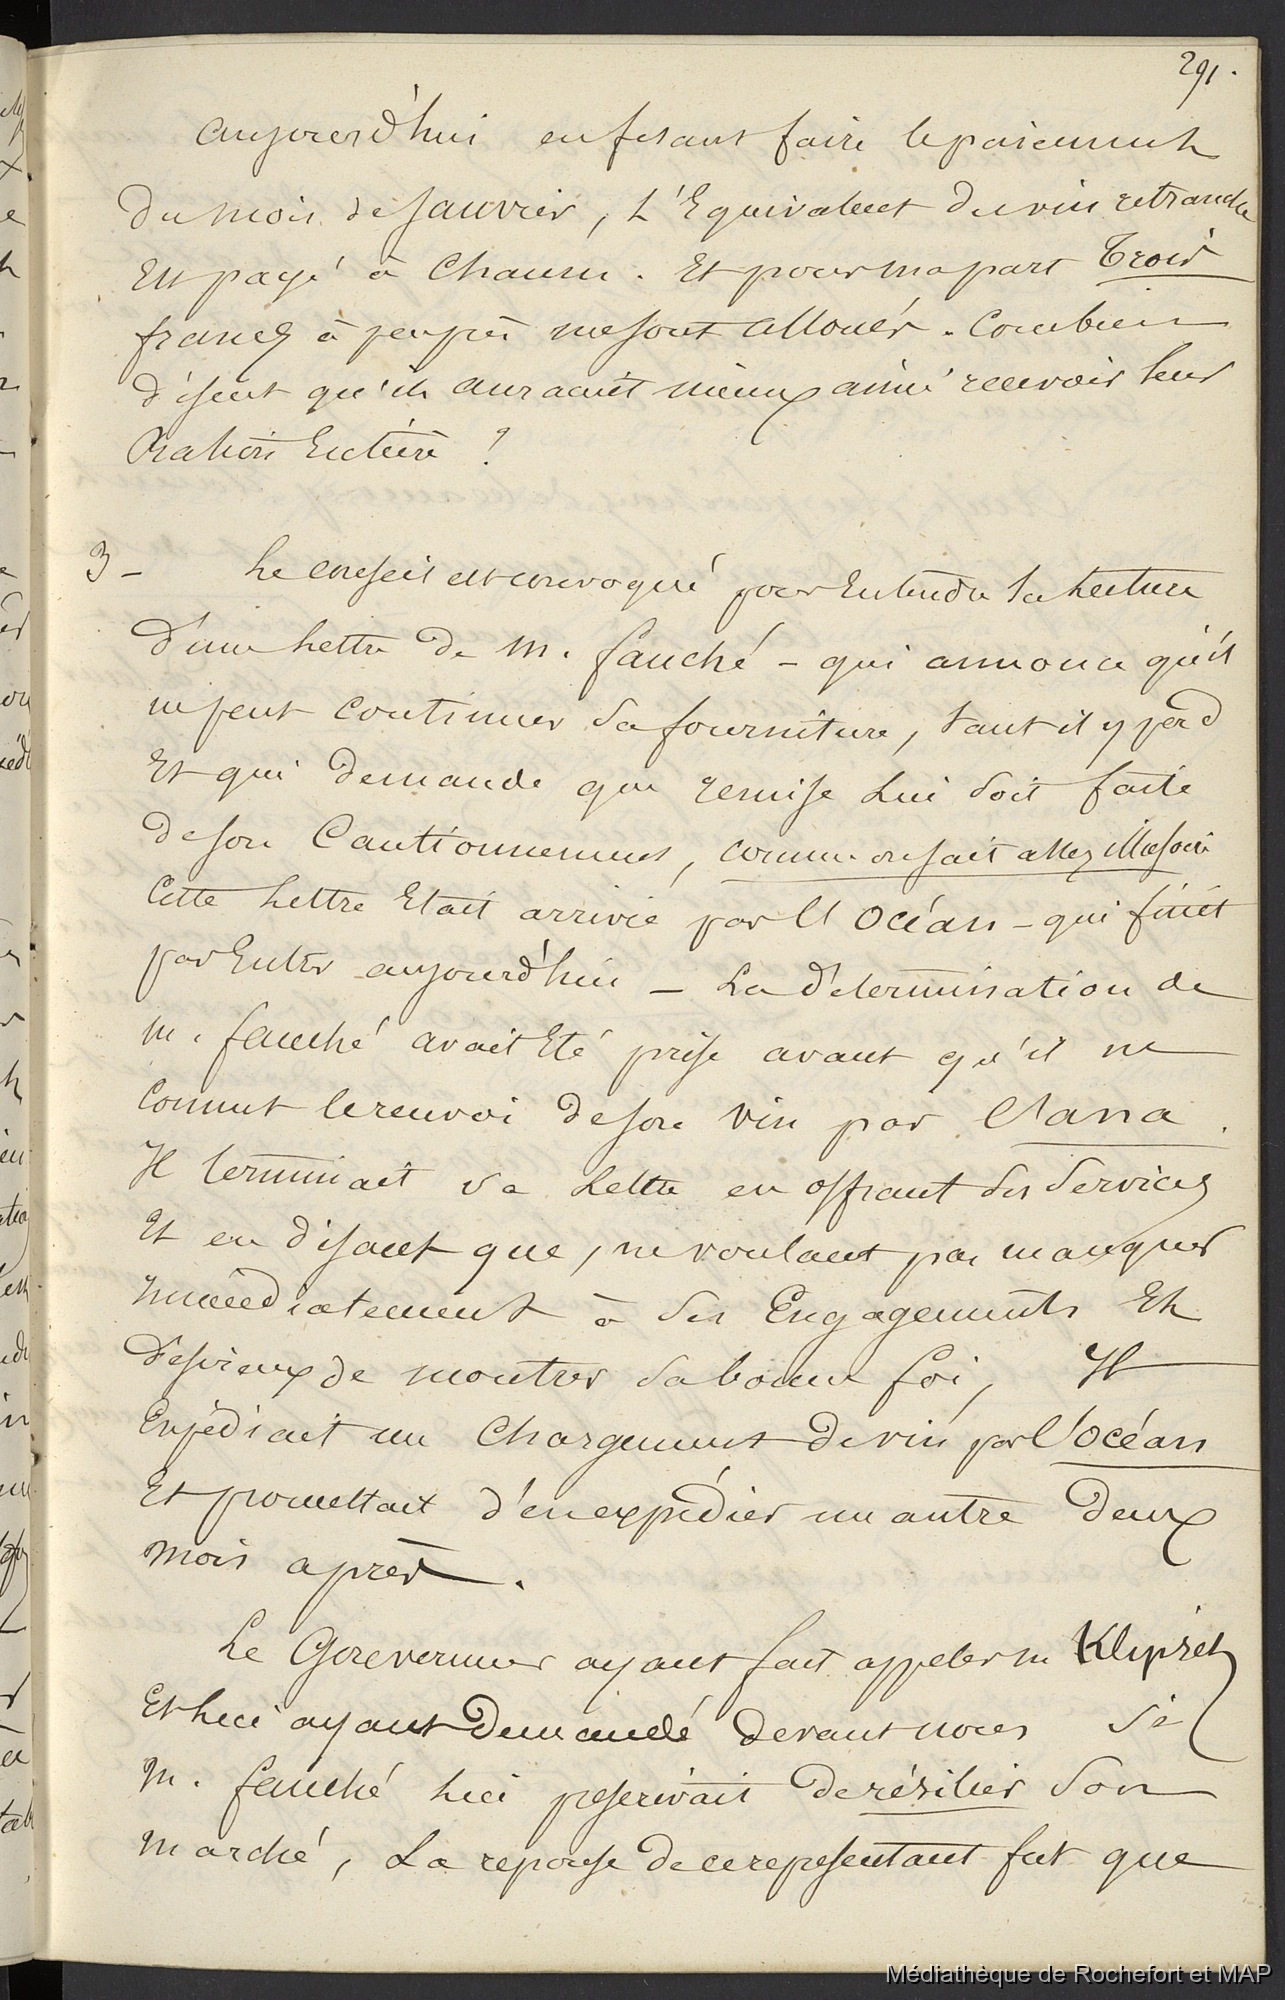 291.
aujourd'hui en fesant faire le paiement
du mois de Janvier, L'Equivalent du vin retranché
Est payé à Chacun. Et pour ma part Trois
francs à peu près me sont alloués. Combien
disent qu'ils auraient mieux aimé recevoir leur
Ration Entière ?
3 - Le conseil est convoqué pour Entendre la Lecture
d'une Lettre de M. fauché - qui annonce qu'il
ne peut continuer sa fourniture, tant il y perd
Et qui demande que remise lui soit faite
de son Cautionnement, comme on sait assez illusoire
Cette Lettre Etait arrivée par l'Océan - qui finit
par Entrer aujourd'hui - La détermination de
M. fauché avait Eté prise avant qu'il ne
connut le renvoi de son vin par l'ana.
Il terminait sa Lettre en offrant ses services
Et en disant que, ne voulant pas manquer
immédiatement à ses Engagements Et
désireux de montrer sa bonne foi, Il
Expédiait un Chargement de vin par L'océan
Et promettait d'en expédier un autre deux
mois après.
Le Gouverneur ayant fait appeler M Klipset
Et lui ayant Demandé devant nous si
M. fauché lui prescrivait de résilier son
marché, La reponse de ce representant fut que
Médiathèque de Rochefort et MAP